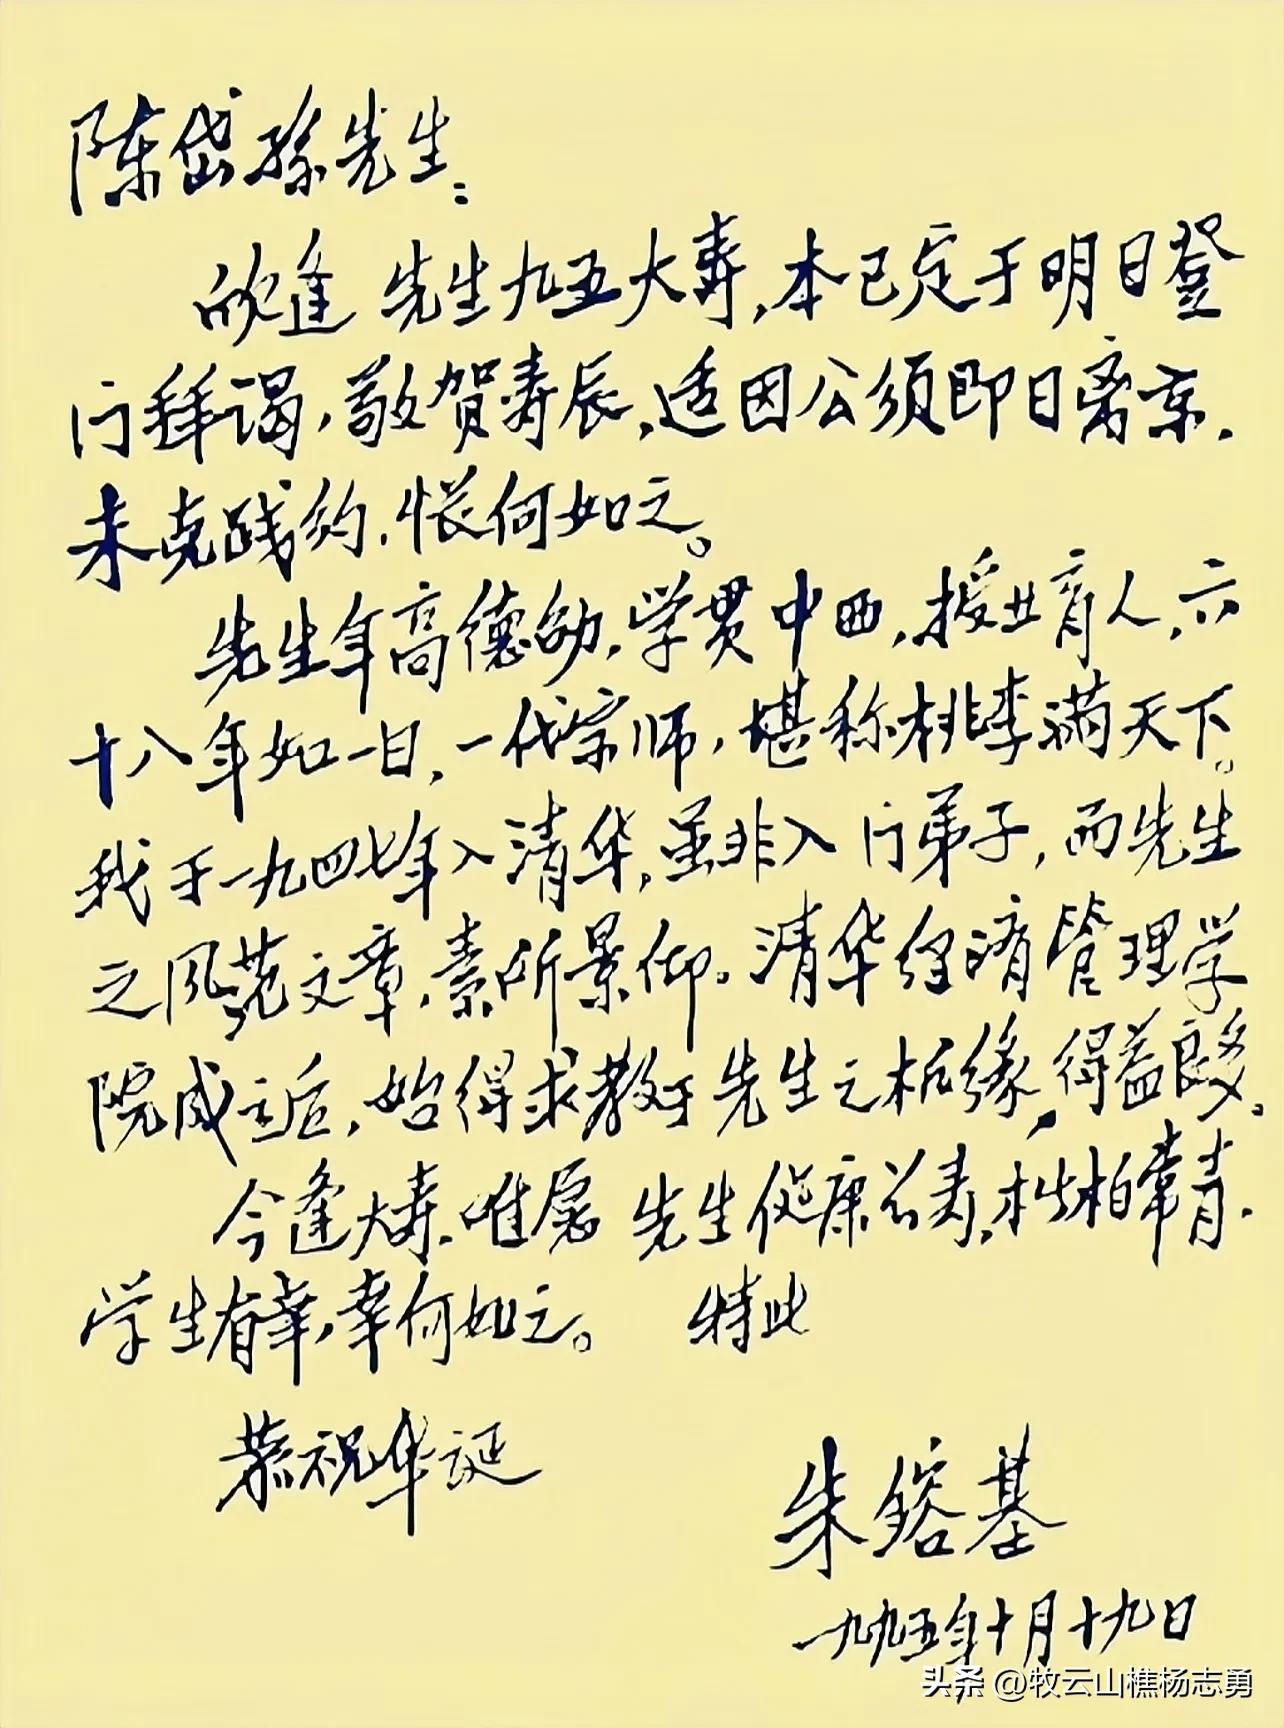 陈岱孙先生：
欣逢 先生九五大寿，本已定于明日登
门拜谒，敬贺寿辰，适因公须即日离京，
未克践约，怅何如之。
先生年高德劭，学贯中西，授业育人，六
十八年如一日，一代宗师，堪称桃李满天下。
我于一九四七年入清华，虽非入门弟子，而先生
之风范文章，素所景仰。清华经济管理学
院成立后，始得求教于先生之机缘，得益良多。
今逢大寿，唯愿 先生健康长寿，松柏常青，
学生有幸，幸何如之。 特此
恭祝华诞
朱镕基
一九九五年十月十九日
头条 @牧云山樵杨志勇